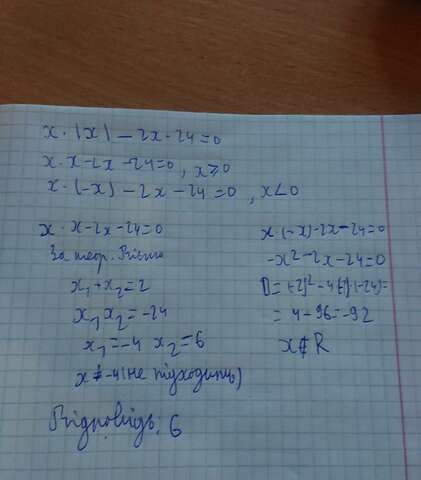 x · |x| - 2x - 24 = 0
x · x - 2x - 24 = 0 , x ⩾ 0
x · (-x) - 2x - 24 = 0 , x < 0
x · x - 2x - 24 = 0
За теор. Вієта
x₁ + x₂ = 2
x₁ x₂ = -24
x₁ = -4 x₂ = 6
x ≠ -4 (не підходить)
Відповідь: 6
x (-x) - 2x - 24 = 0
-x² - 2x - 24 = 0
D = (-2)² - 4(-1)·(-24) =
= 4 - 96 = -92
x ∉ R